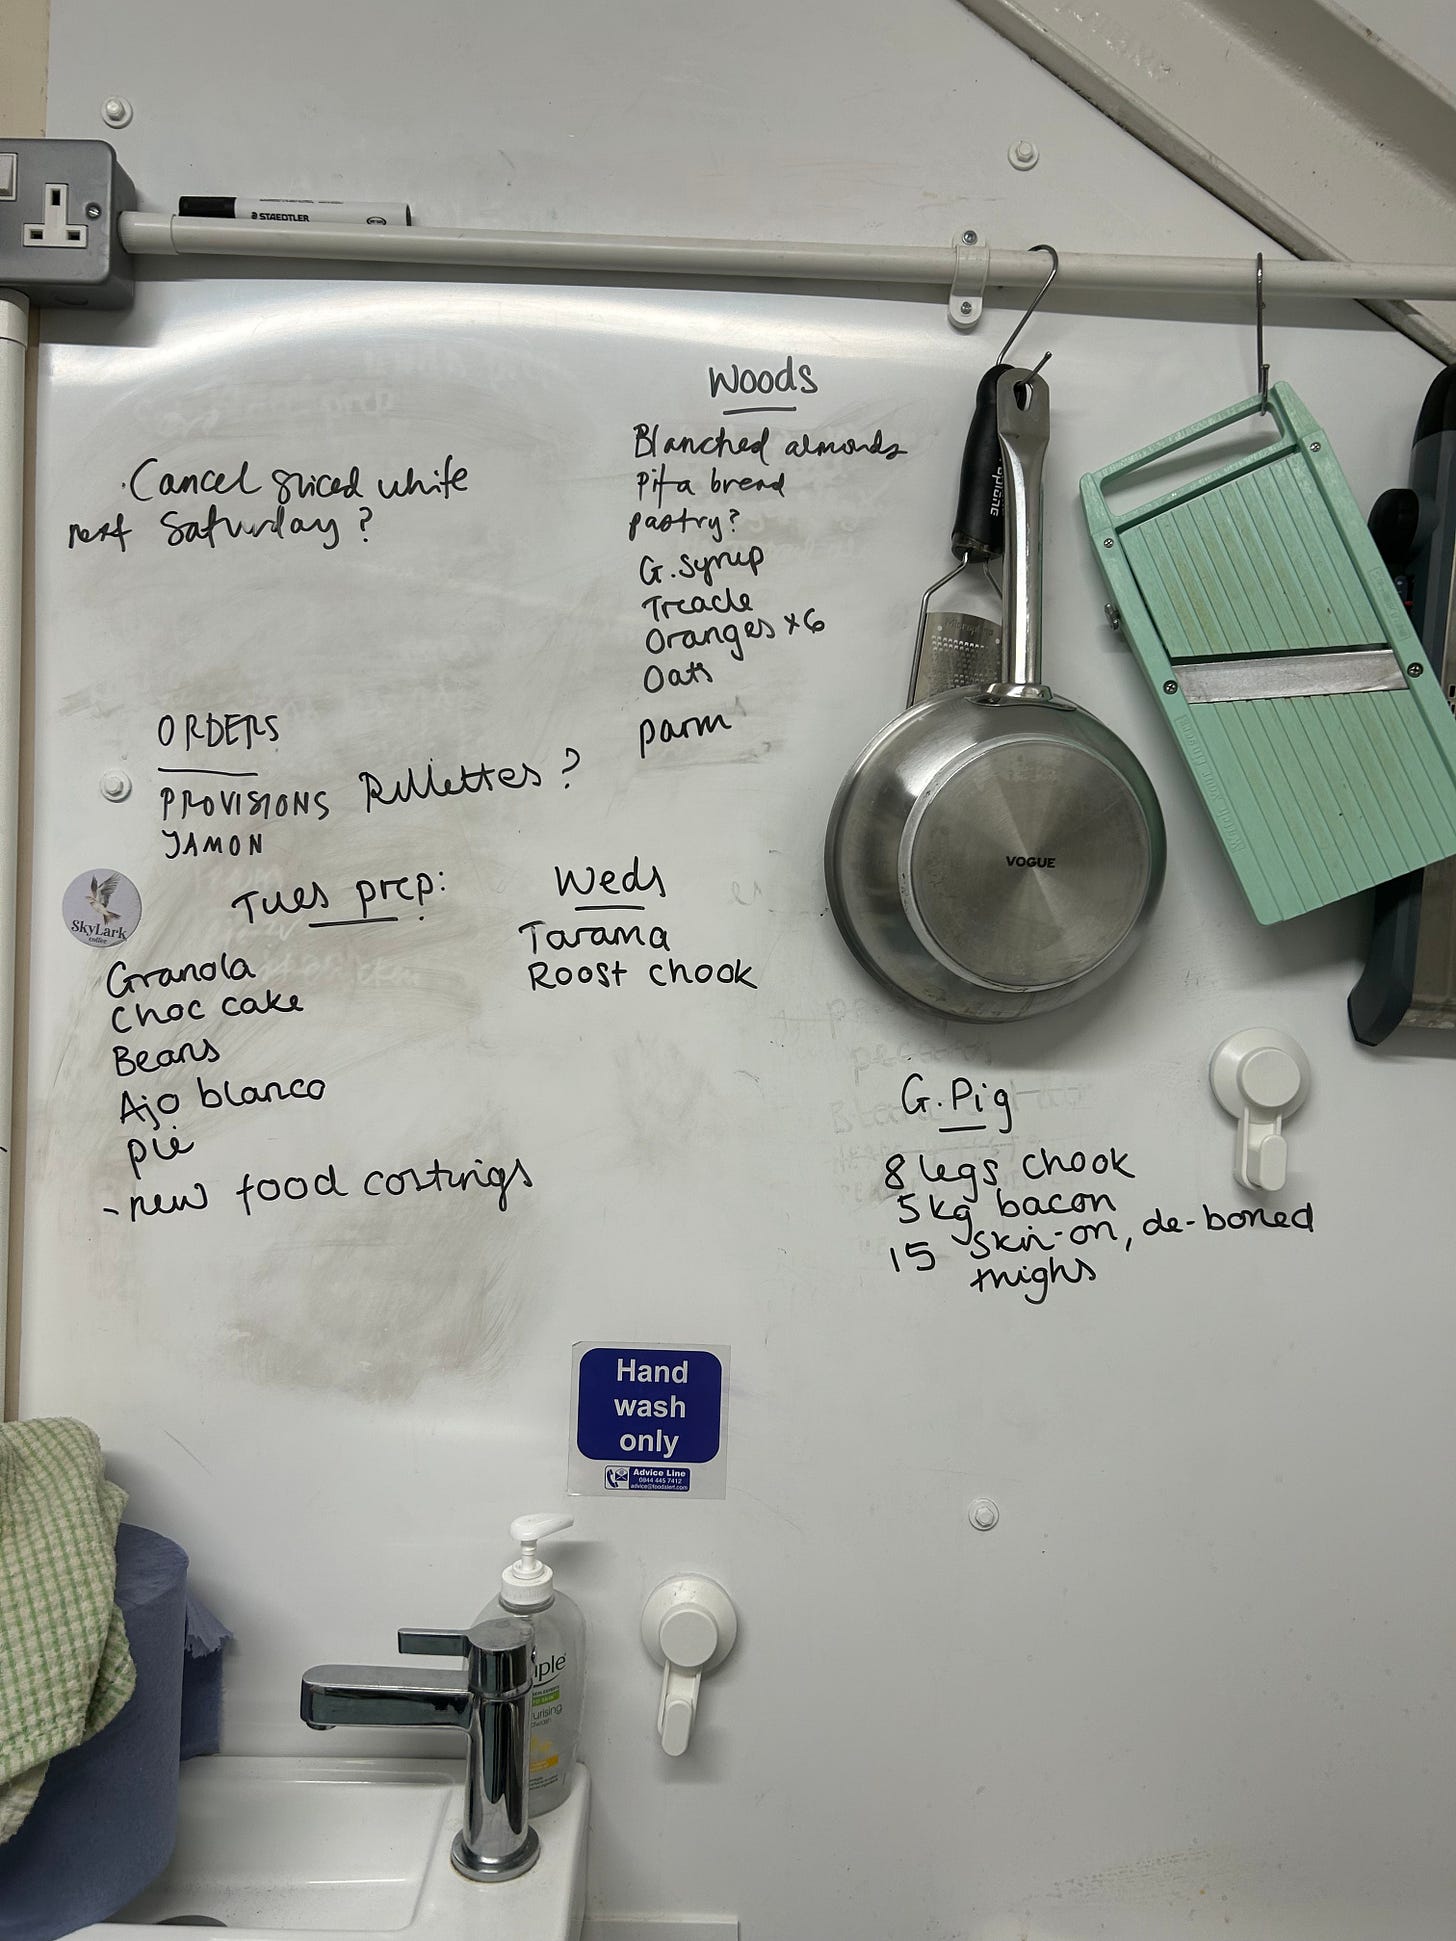 STAEDTLER
Woods
Blanched almonds
Pita bread
pastry?
G. Syrup
Treacle
Oranges x6
Oats
parm
Cancel sliced white
next Saturday?
ORDERS
PROVISIONS Rillettes?
JAMON
Tues prep:
Granola
Choc cake
Beans
Ajo blanco
pie
- new food costings
Weds
Tarama
Roast chook
SkyLark
coffee
VOGUE
G. Pig
8 legs chook
5kg bacon
15 skin-on, de-boned
thighs
Hand
wash
only
Advice Line
0844 445 7412
advice@foodalert.com